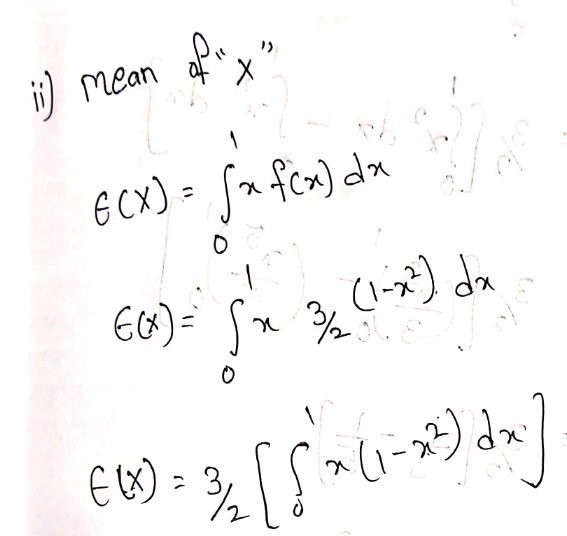 ii) mean of "x"
E(X) = ∫₀¹ x f(x) dx
E(X) = ∫₀¹ x 3/2 (1-x²). dx
E(X) = 3/2 [ ∫₀¹ x (1-x²) dx ]